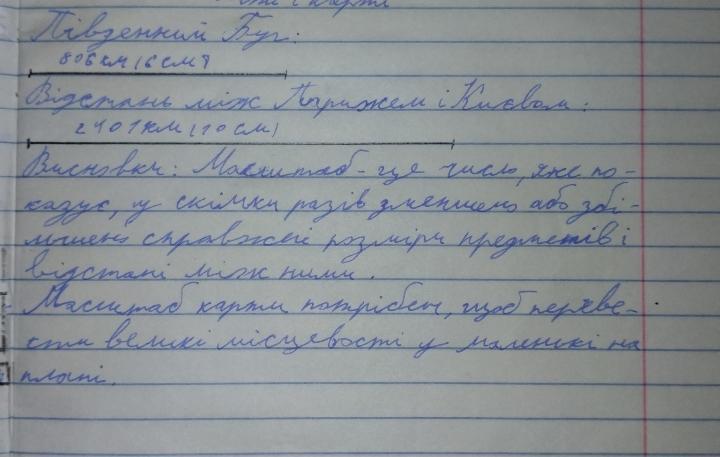 і карти
Південний Буг:
806 км (6 см)
Відстань між Парижем і Києвом:
2401 км (10 см)
Висновки: Масштаб - це число, яке по-
казує, у скільки разів зменшено або збі-
льшено справжні розміри предметів і
відстані між ними.
Масштаб карти потрібен, щоб переве-
сти великі місцевості у маленькі на
плані.